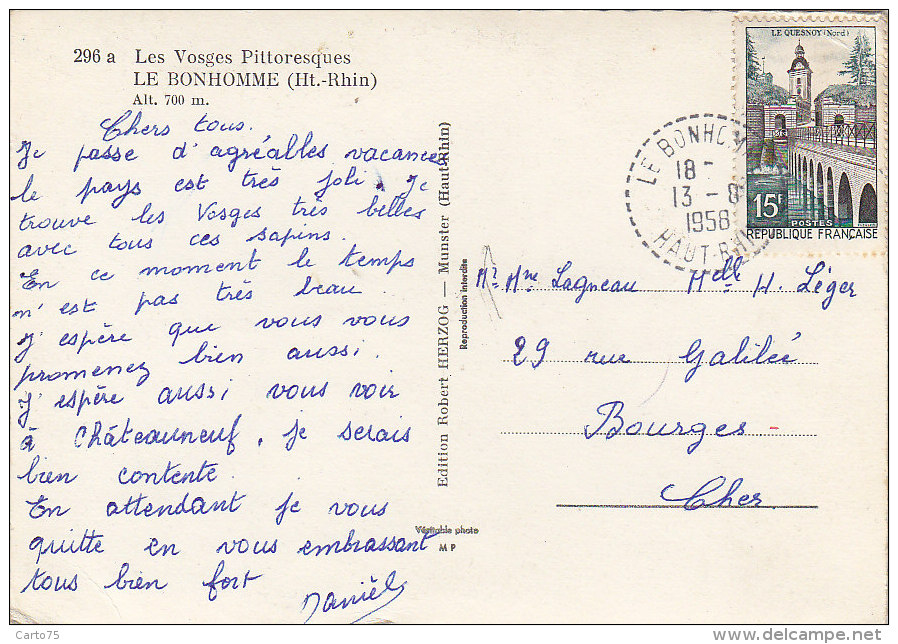 296 a Les Vosges Pittoresques
LE BONHOMME (Ht.-Rhin)
Alt. 700 m.
Chers tous.
Je passe d'agréables vacances
le pays est très joli. Je
trouve les Vosges très belles
avec tous ces sapins.
En ce moment le temps
n'est pas très beau.
J'espère que vous vous
promenez bien aussi.
J'espère aussi vous voir
à Châteauneuf, je serais
bien contente.
En attendant je vous
quitte en vous embrassant
tous bien fort
Danièle
Edition Robert HERZOG — Munster (Haut-Rhin)
Reproduction interdite
Véritable photo
MP
LE QUESNOY (Nord)
15F
POSTES
REPUBLIQUE FRANÇAISE
LE BONHOM
18 -
13 - 8
1958
HAUT-RHI
Mr Mme Lagneau Melle H. Léger
29 rue Galilée
Bourges -
Cher
Carto75
delcampe.net